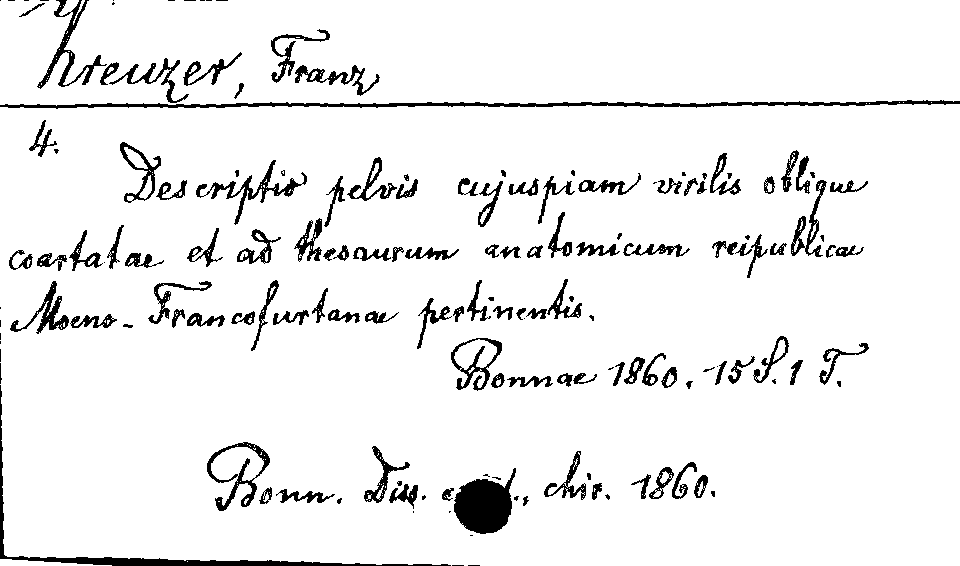 Kreuzer, Franz
4.
Descriptio pelvis cujuspiam virilis oblique
coartatae et ad thesaurum anatomicum reipublicae
Moeno-Francofurtanae pertinentis.
Bonnae 1860. 15 S. 1 T.
Bonn. Diss. chir. 1860.